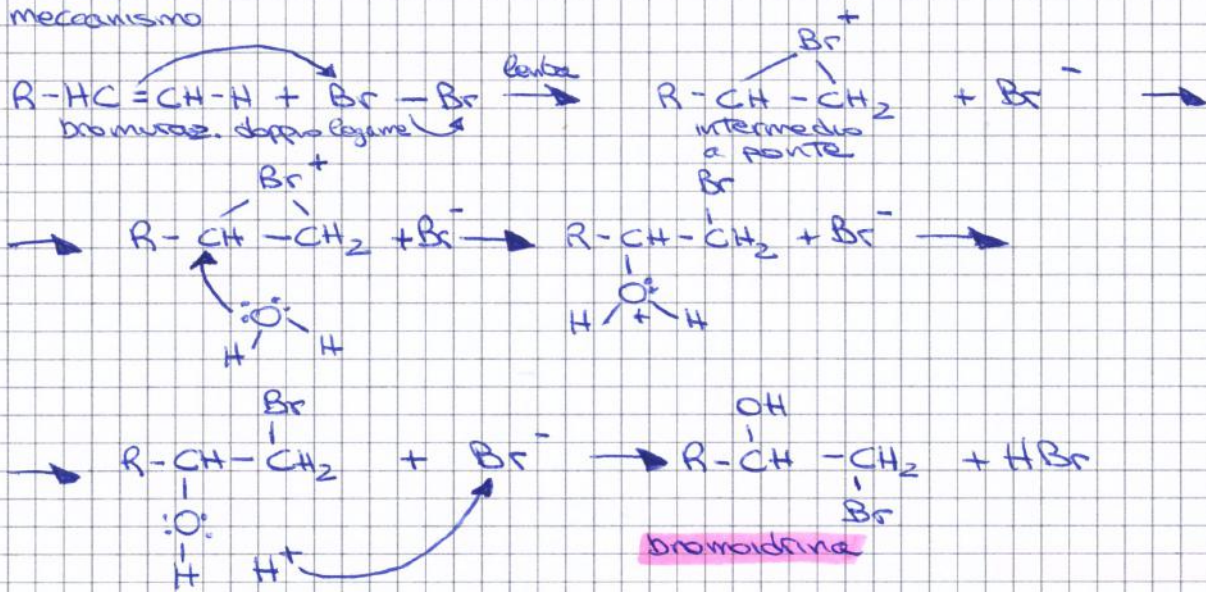 meccanismo
R-HC=CH-H + Br-Br lenta R-CH-CH₂ + Br⁻
Br⁺
bromuraz. doppio legame
intermedio
a ponte
Br⁺
R-CH-CH₂ + Br⁻
:Ö:
H H
Br
R-CH-CH₂ + Br⁻
O:
H + H
Br
R-CH-CH₂ + Br⁻
:O:
H H⁺
OH
R-CH-CH₂ + HBr
Br
bromoidrina